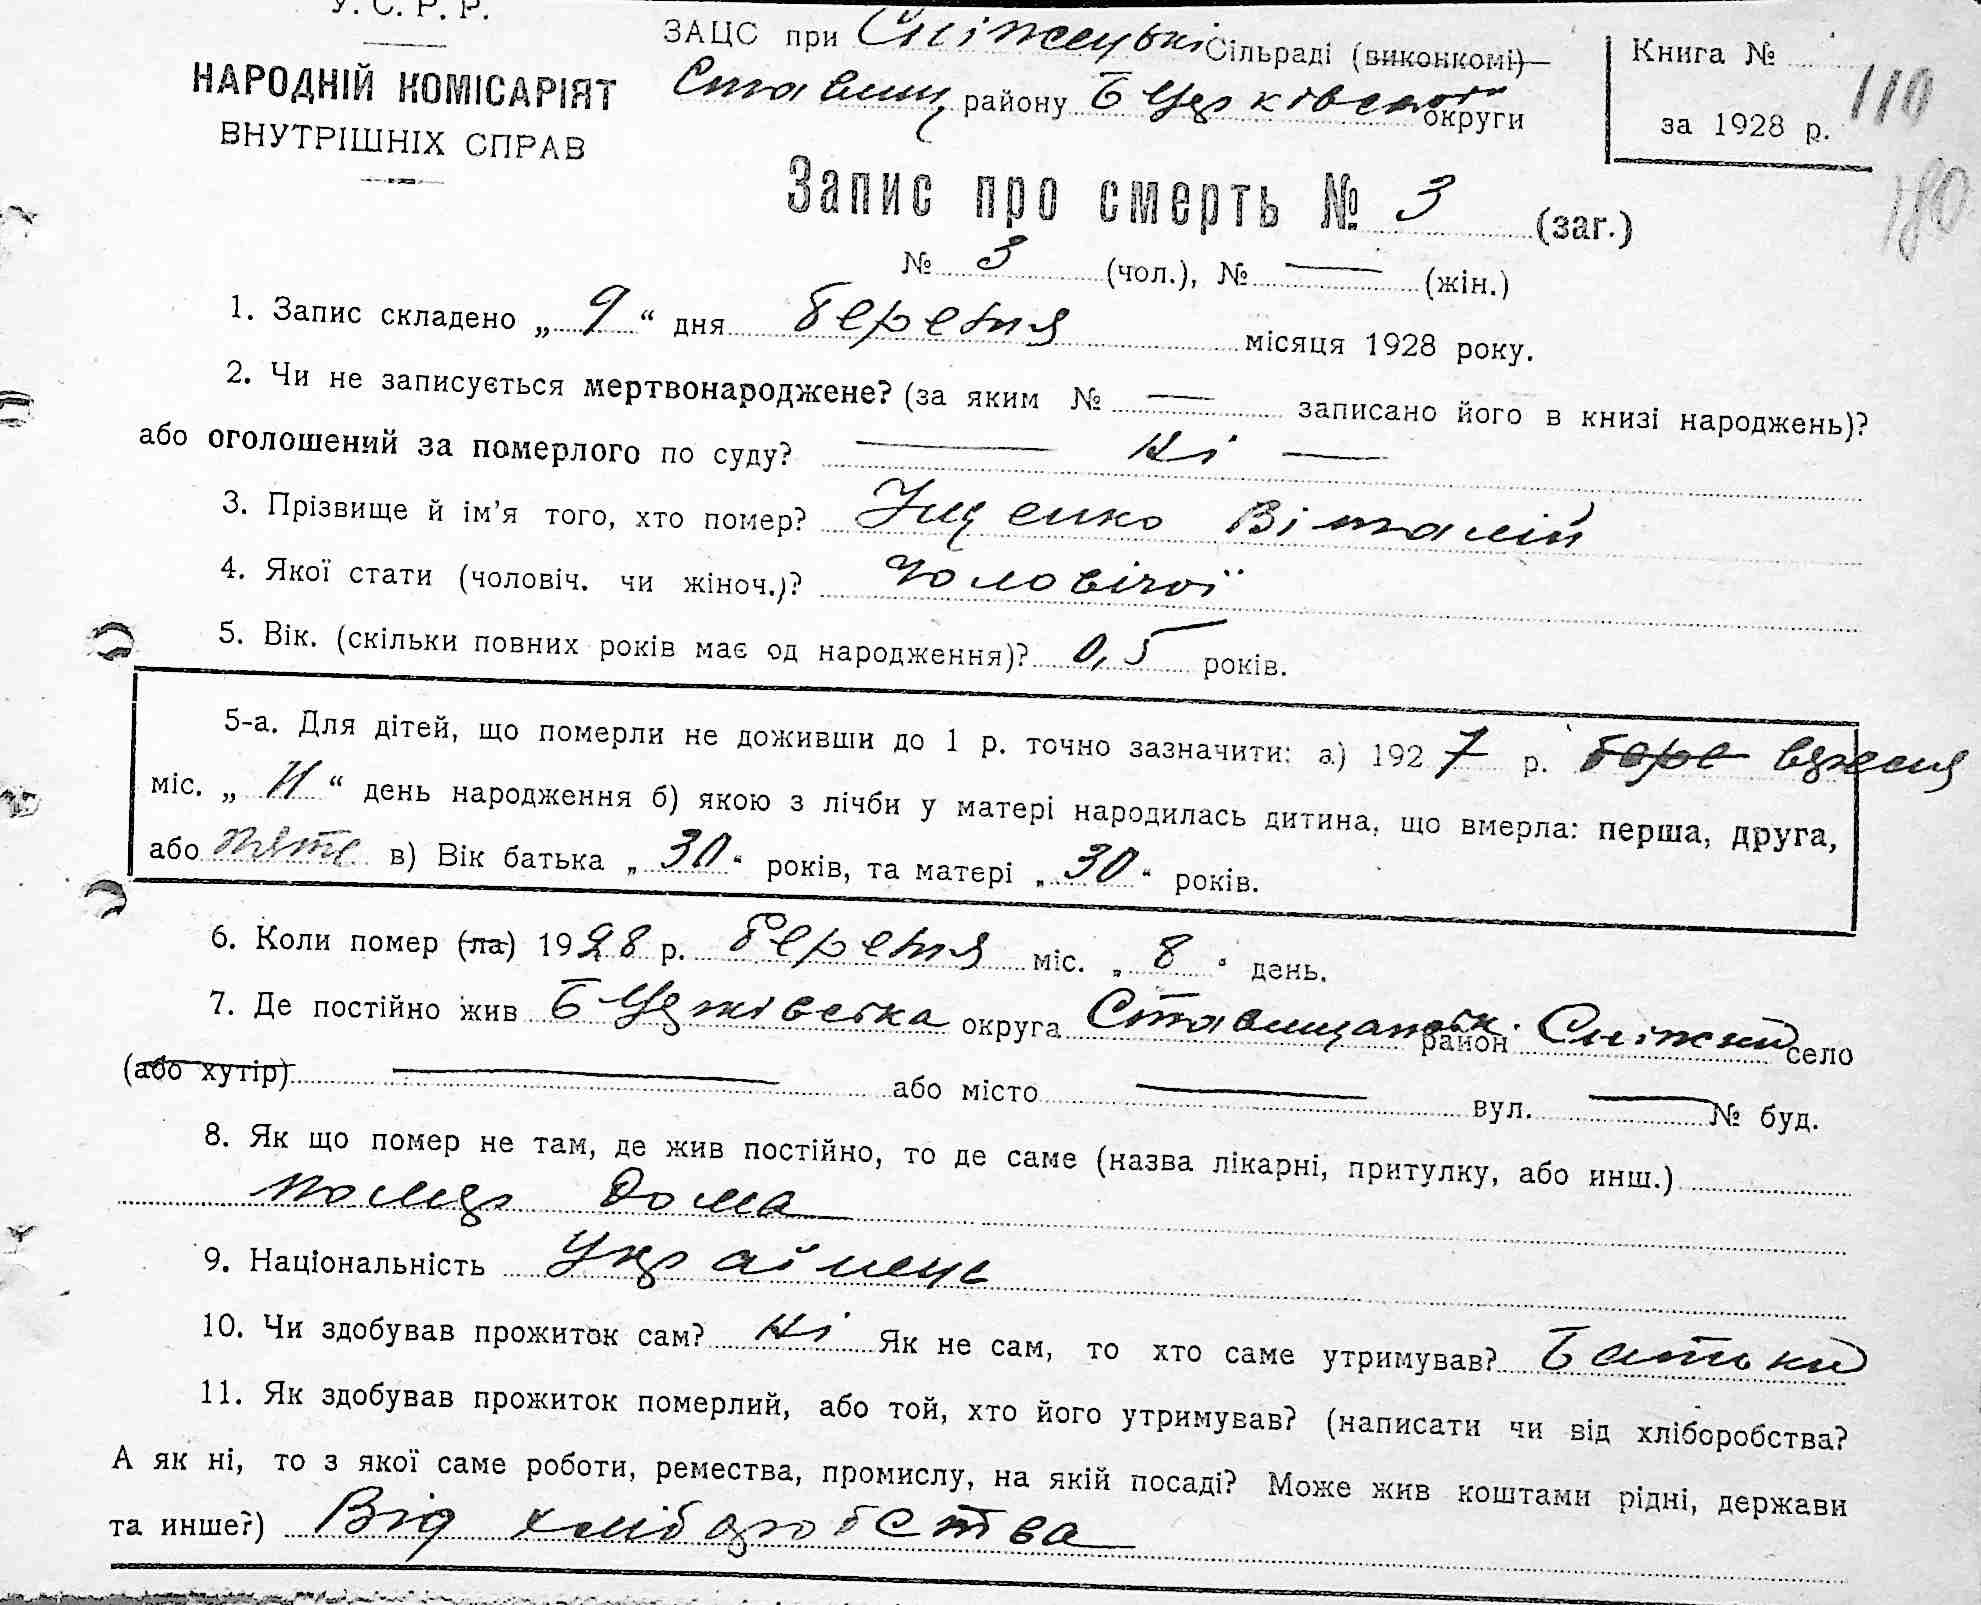 У. С. Р. Р.
НАРОДНІЙ КОМІСАРІЯТ
ВНУТРІШНІХ СПРАВ
ЗАЦС при Сніжецькі Сільраді (виконкомі)
Ставищ району Б Церківської округи
Книга №
за 1928 р.
110
180
Запис про смерть № 3 (заг.)
№ 3 (чол.), № — (жін.)
1. Запис складено „ 9 “ дня березня місяця 1928 року.
2. Чи не записується мертвонароджене? (за яким № — записано його в книзі народжень)?
або оголошений за померлого по суду? — Ні —
3. Прізвище й ім’я того, хто помер? Іщенко Віталій
4. Якої стати (чоловіч. чи жіноч.)? Чоловічої
5. Вік. (скільки повних років має од народження)? 0,5 років.
5-а. Для дітей, що померли не доживши до 1 р. точно зазначити: а) 1927 р. бере вересня
міс. „ 11 “ день народження б) якою з лічби у матері народилась дитина, що вмерла: перша, друга,
або пяте в) Вік батька „ 30 “ років, та матері „ 30 “ років.
6. Коли помер (ла) 1928 р. березня міс. „ 8 “ день.
7. Де постійно жив Б Церківська округа Ставищанськ. район Сніжки село
(або хутір) — або місто — вул. — № буд.
8. Як що помер не там, де жив постійно, то де саме (назва лікарні, притулку, або инш.)
помер дома
9. Національність Українець
10. Чи здобував прожиток сам? Ні Як не сам, то хто саме утримував? Батьки
11. Як здобував прожиток померлий, або той, хто його утримував? (написати чи від хліборобства?
А як ні, то з якої саме роботи, ремества, промислу, на якій посаді? Може жив коштами рідні, держави
та инше?) Від хліборобства